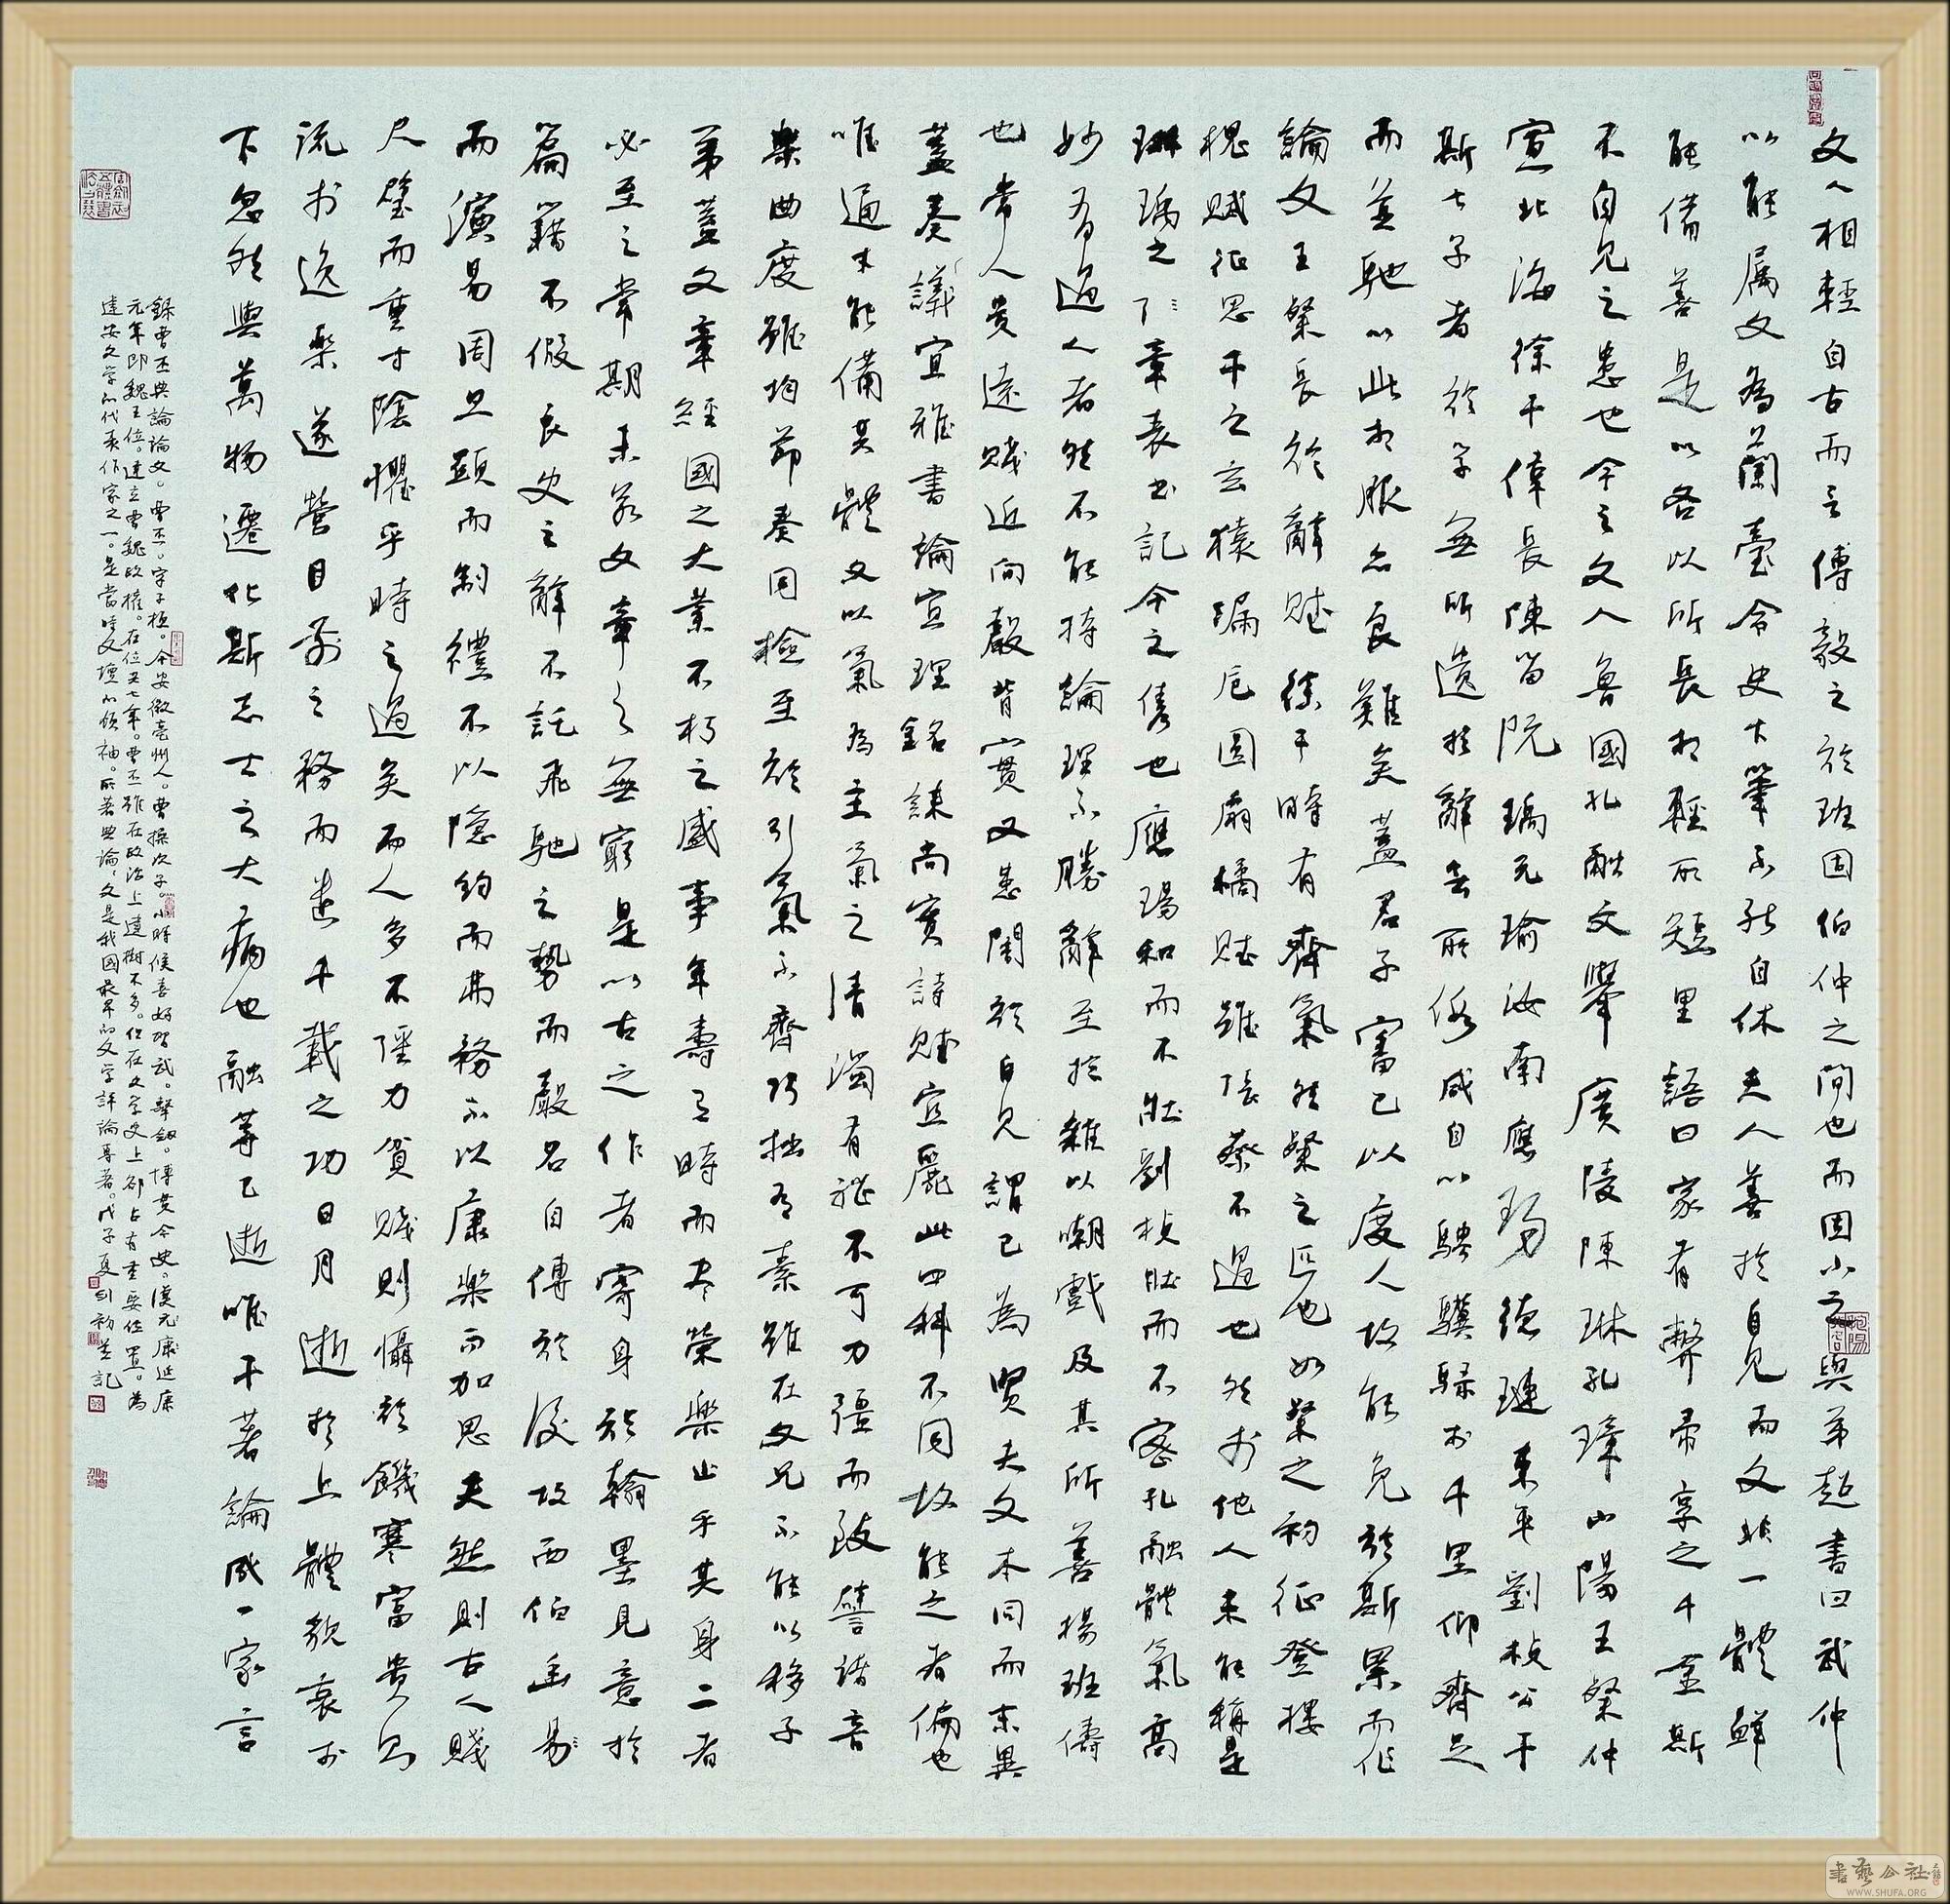 文人相輕自古而言傅毅之於班固伯仲之間也而固小之與弟超書曰武仲
以能属文為蘭臺令史下筆不能自休夫人善於自見而文非一體鮮
能備善是以各以所長相輕所短里語曰家有弊帚享之千金斯
不自見之患也今之文人魯國孔融文舉廣陵陳琳孔璋山陽王粲仲
宣北海徐干偉長陳留阮瑀元瑜汝南應瑒德璉東平劉楨公干
斯七子者於学無所遗於辭無所假咸自以騁驥騄於千里仰齊足
而並馳以此相服亦良難矣蓋君子審己以度人故能免於斯累而作
論文王粲長於辭賦徐干時有齊氣然粲之匹也如粲之初征登樓
槐賦征思干之玄猿漏卮圓扇橘賦雖張蔡不過也然於他人未能稱是
琳瑀之章表書記今之雋也應瑒和而不壯劉楨壯而不密孔融體氣高
妙有過人者然不能持論理不勝辭至於雜以嘲戲及其所善揚班儔
也常人贵遠賤近向聲背實又患闇於自見謂己為贤夫文本同而末異
蓋奏議宜雅書論宜理銘誄尚實詩賦宜麗此四科不同故能之者偏也
唯通才能備其體文以氣為主氣之清濁有體不可力彊而致譬諸音
樂曲度雖均節奏同檢至於引氣不齊巧拙有素雖在父兄不能以移子
弟蓋文章經國之大業不朽之盛事年壽有時而尽榮樂止乎其身二者
必至之常期未若文章之無窮是以古之作者寄身於翰墨見意於
篇籍不假良史之辭不託飛馳之勢而聲名自傳於後故西伯幽易
而演易周旦顕而制禮不以隐約而弗務不以康樂而加思夫然則古人賤
尺璧而重寸陰懼乎時之過矣而人多不强力贫賤則懾於饑寒富贵則
流於逸乐遂營目前之務而遺千載之功日月逝於上體貌衰於
下忽然與萬物遷化斯志士之大痛也融等已逝唯干著論成一家言
錄曹丕典論論文。曹丕。字子桓。今安徽亳州人。曹操次子。小時候喜好習武。擊劍。博其今史。漢元康延康
元年即魏王位。建立曹魏政權。在位又七年。曹丕雖在政治上建樹不多。但在文学史上卻占有重要位置。為
建安文学的代表作家之一。是當時文壇的領袖。所著典論，文是我國最早的文学評論專著。戊子夏月初並記
書藝公社
WWW.SHUFA.ORG